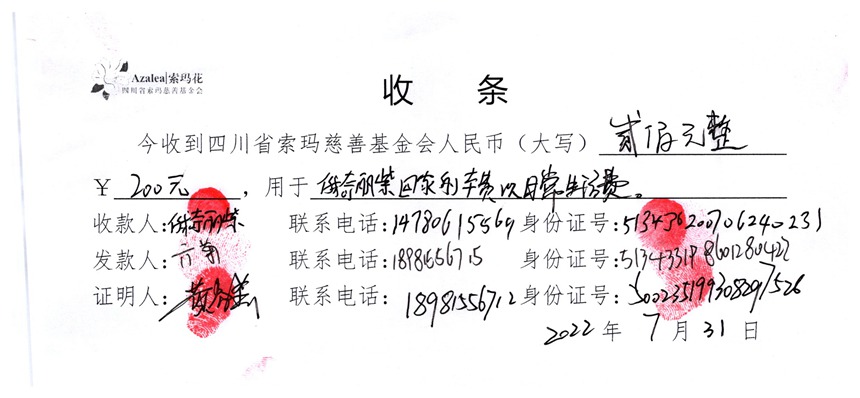 Azalea|索玛花
四川省索玛慈善基金会
收 条
今收到四川省索玛慈善基金会人民币(大写)贰佰元整
¥ 200元,用于 奈丽柴回家的车费以及日常生活费。
收款人: 奈丽柴 联系电话:14780615569 身份证号:513436200706240231
发款人: 联系电话:18981556715 身份证号:513433198601280427
证明人: 联系电话:18981556712 身份证号:500235199308297526
2022 年 7 月 31 日